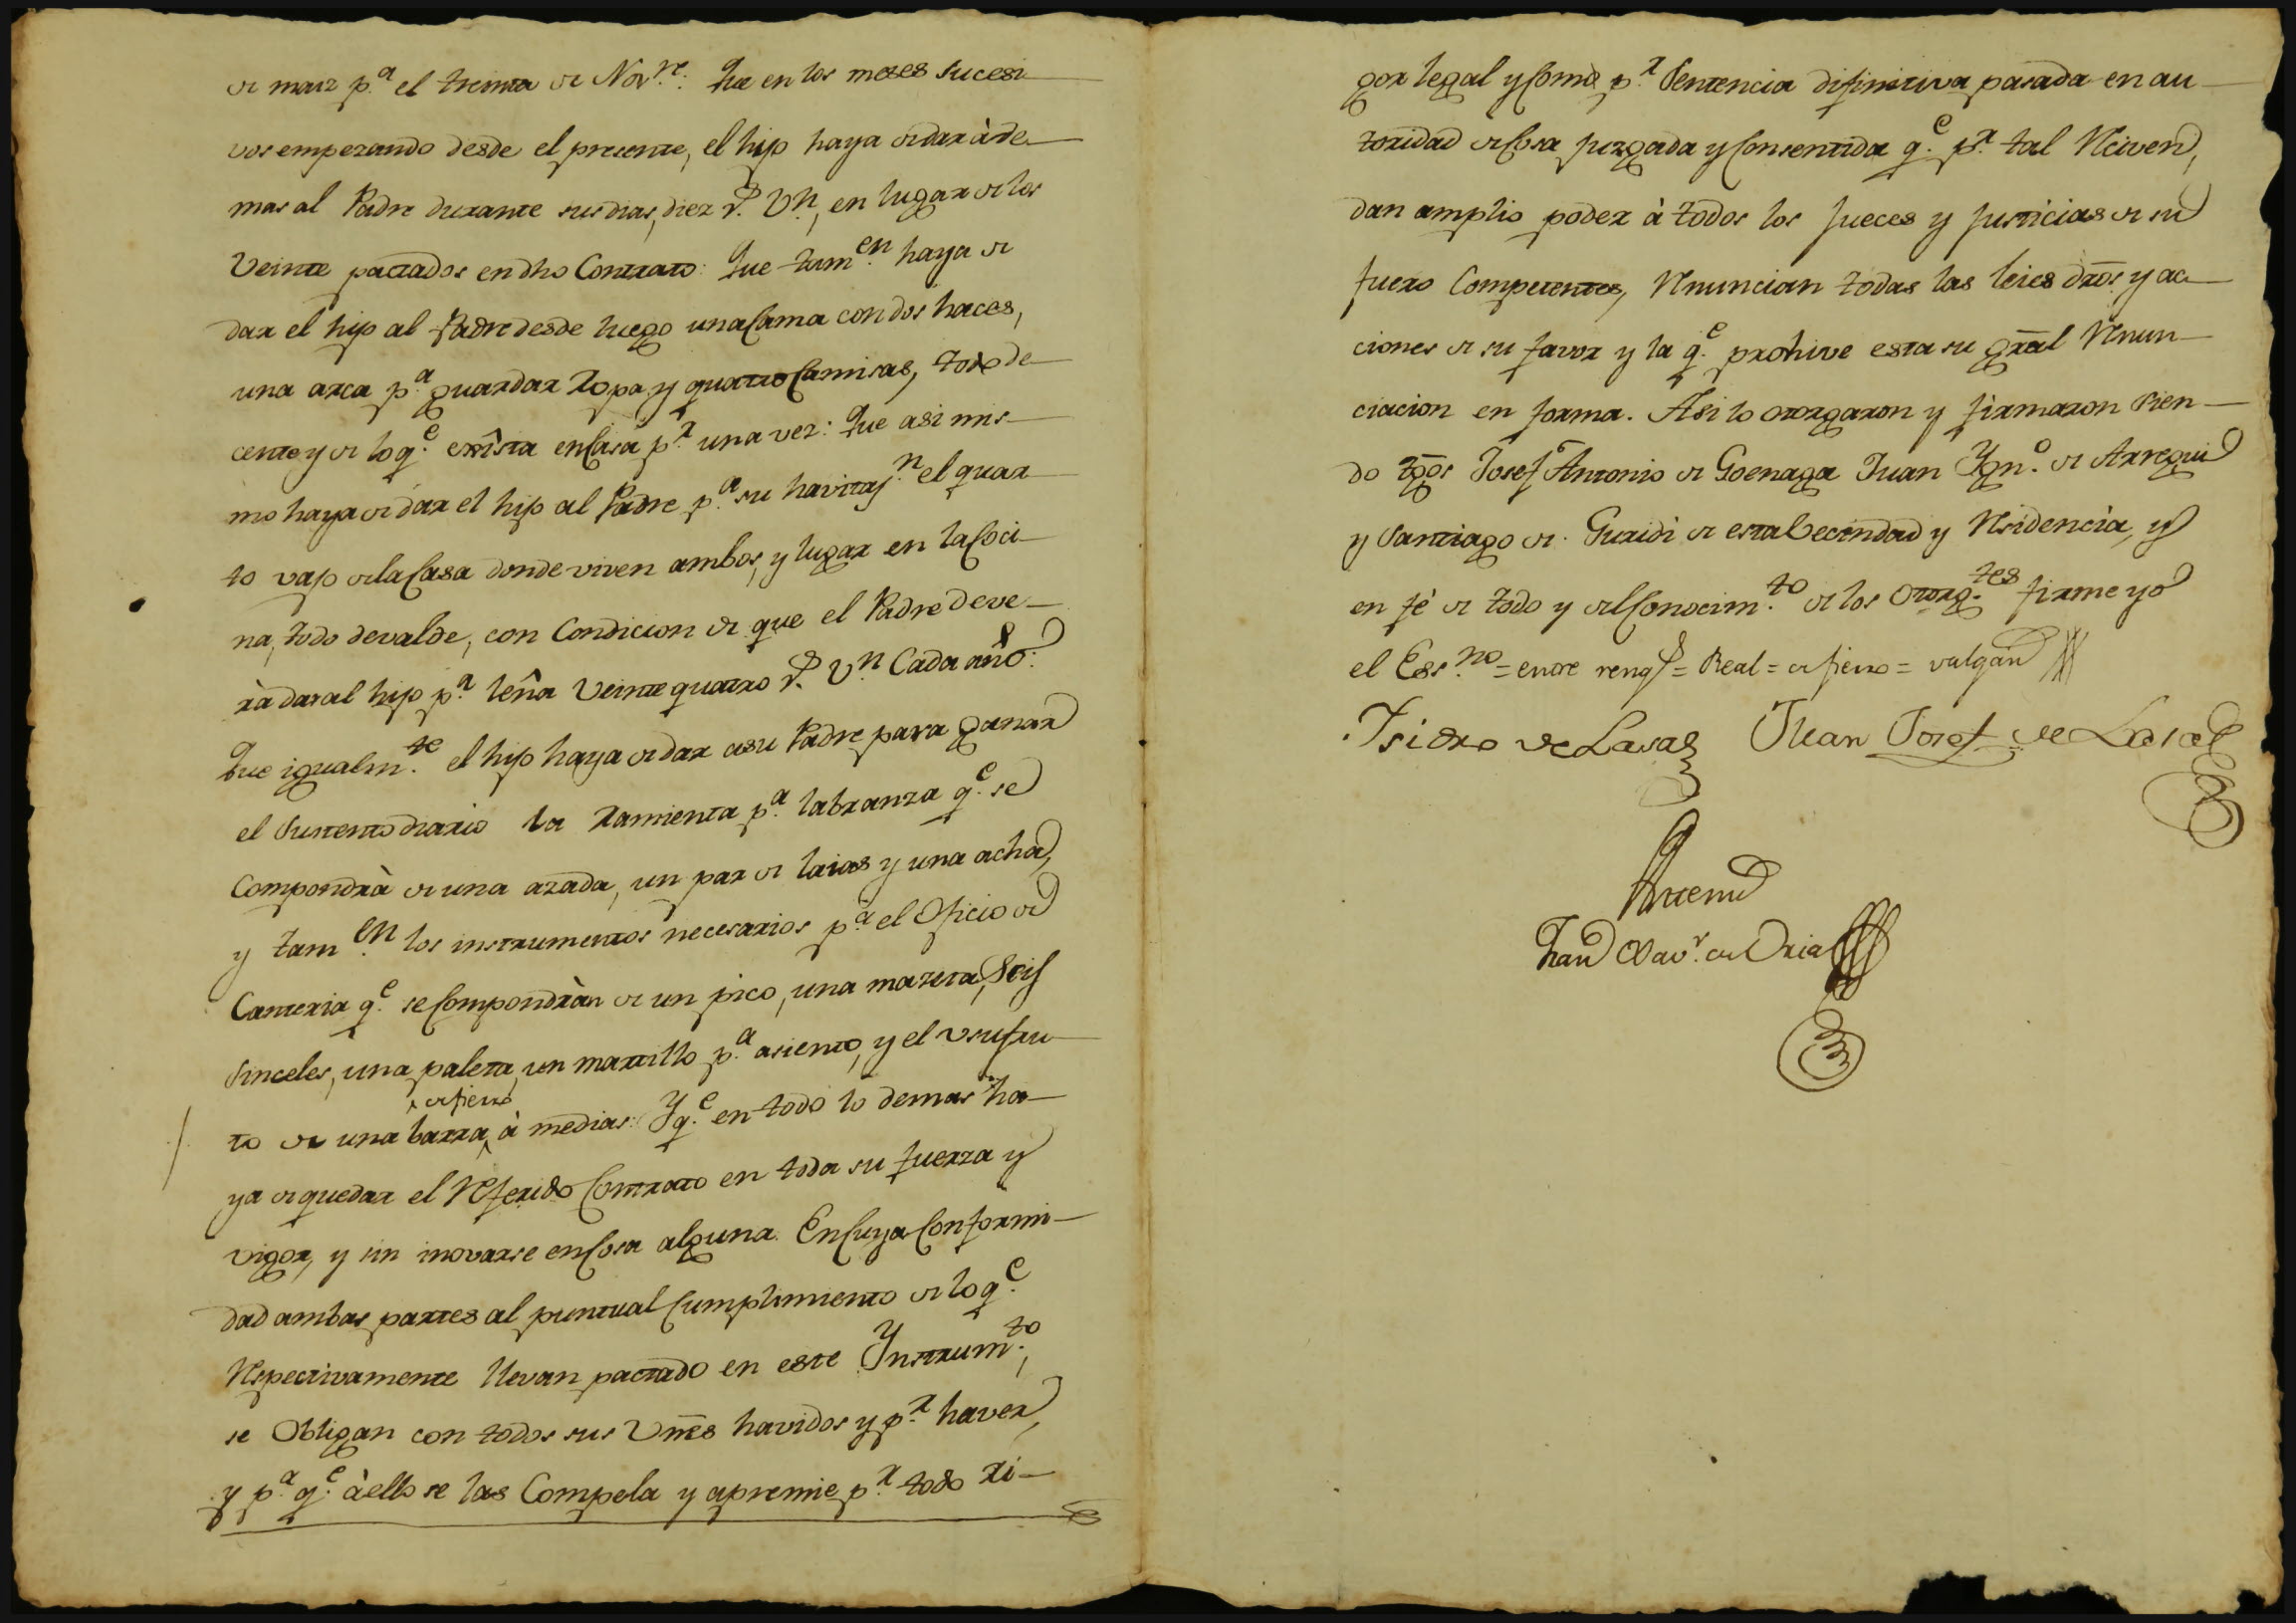 de maiz p.a el treinta de Nov.re Que en los meses sucesi-
vos empezando desde el presente, el hijo haya de dar àde-
mas al Padre durante sus dias, diez r.s Vn, en lugar de los
Veinte pactados en dho Contrato: Que tam.en haya de
dar el hijo al Padre desde luego una Cama con dos haces,
una arca p.a guardar Ropa y quatro Camisas, todo de-
cente y de lo q.e exîsta en Casa p.r una vez: Que asi mis-
mo haya de dar el hijo al Padre p.a su havitaz.n el quar-
to vajo de la Casa donde viven ambos, y lugar en la Coci-
na, todo devalde, con Condicion de que el Padre deve-
rà dar al hijo p.a leña Veinte quatro r.s Vn Cada año:
Que igualm.te el hijo haya de dar a su Padre para ganar
el Sustento diario la Ramienta p.a labranza q.e se
Compondrà de una azada, un par de laias y una acha,
y tam.en los instrumentos necesarios p.a el Oficio de
Canteria q.e se Compondràn de un pico, una mazeta, Seis
Sinceles, una paleta, un martillo p.a asiento, y el Vsufru-
de fierro
to de una barra à medias: Y q.e en todo lo demas ha-
ya de quedar el Referido Contrato en toda su fuerza y
vigor, y sin inovarse en Cosa alguna. En Cuya Conformi-
dad ambas partes al puntual Cumplimiento de lo q.e
Respectivamente llevan pactado en este Ynstrum.to,
se Obligan con todos sus Vnes havidos y p.r haver,
y p.a q.e àello se las Compela y apremie p.r todo Ri-
gor legal y Como p.r Sentencia difinitiva pasada en au-
toridad de Cosa Juzgada y Consentida q.e p.r tal Reciven,
dan amplio poder à todos los Jueces y Justicias de su
fuero Competentes, Renuncian todas las leies dros y ac-
ciones de su favor y la q.e prohive esta su gral Renun-
ciacion en forma. Asi lo otorgaron y firmaron sien-
do tgos Josef Antonio de Goenaga Juan Ygn.o de Arregui
y Santiago de Guridi de esta Vecindad y Residencia, y
en fè de todo y del Conocim.to de los Otorg.tes firme yo
el Ess.no = entre reng.s = Real = de fierro = valgan
Isidro de Lasa Juan Josef de Lasa
Antemi
Fran Xav.r de Oria